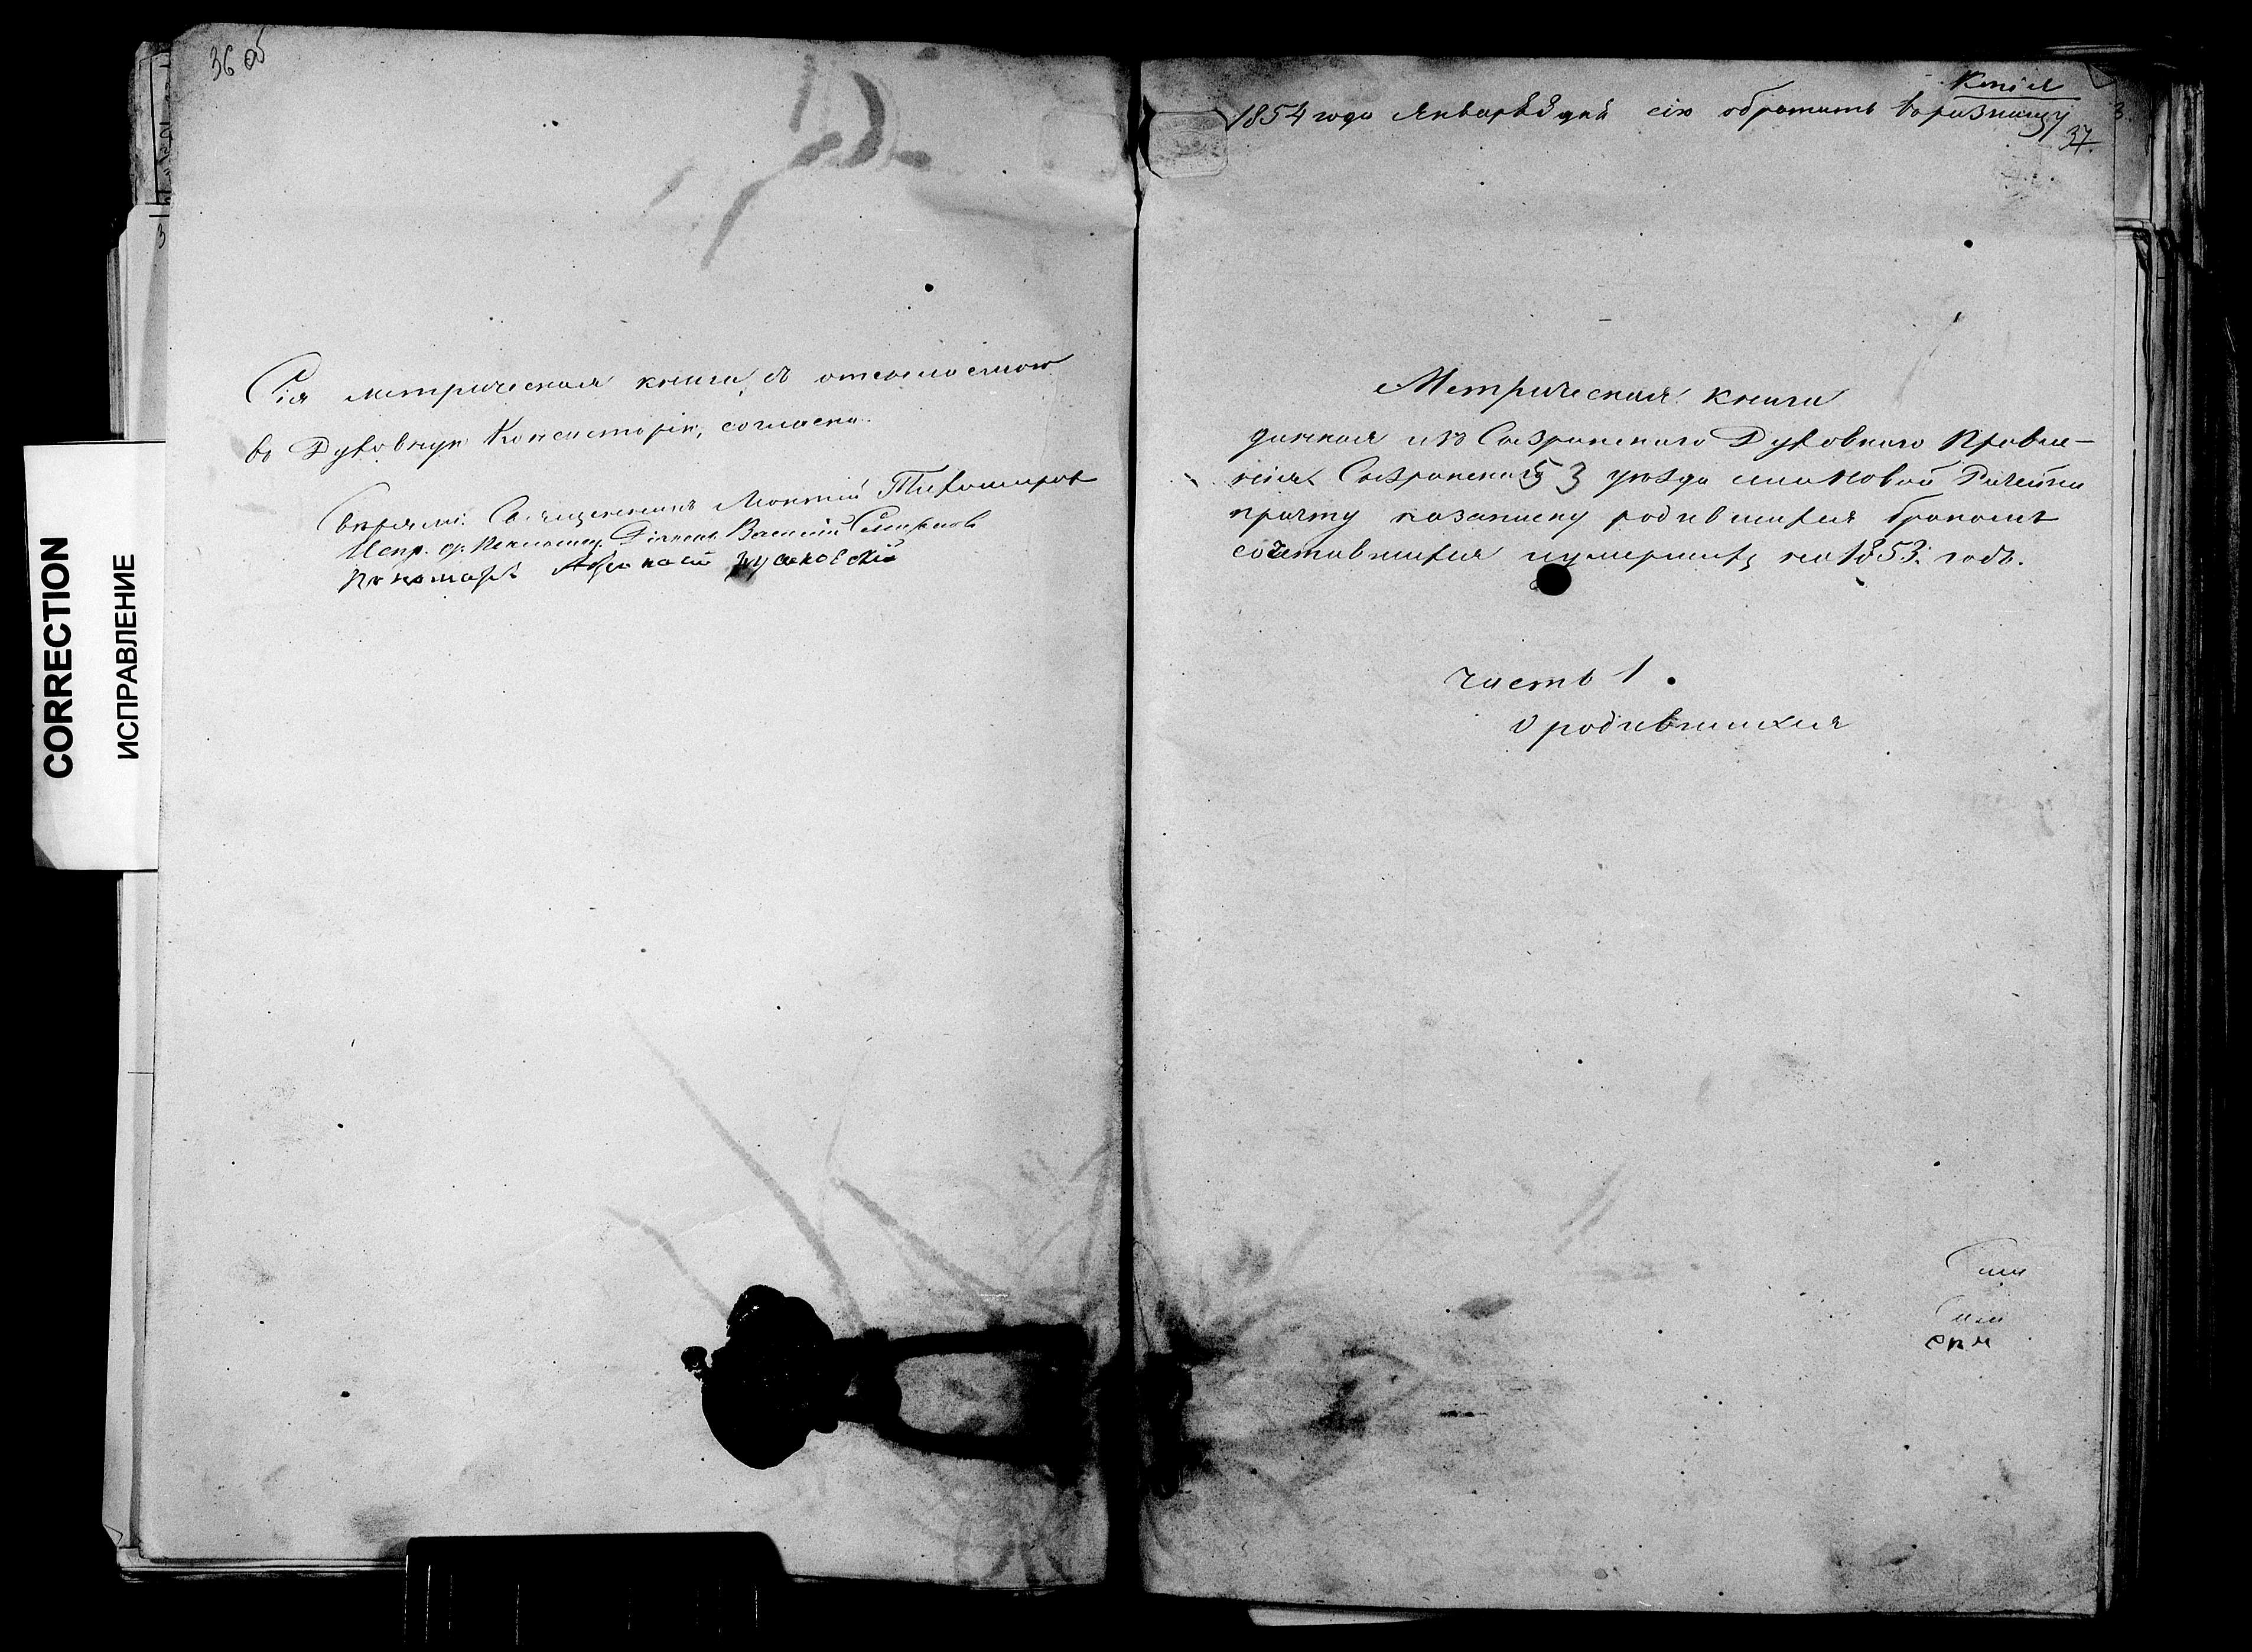 36 об
Сія метрическая книга съ отсылаемою
въ Духовную Консисторію, согласна.
Свѣряли: Священникъ Тихомировъ
Испр. д. Діаконъ Василій Смирновъ
Пономарь
CORRECTION
ИСПРАВЛЕНИЕ
Копія
1854 года Января дня сію обратить въ ризницу
37.
Метрическая книга
данная изъ Сызранскаго Духовнаго Правле-
нія Сызранскаго 53 уѣзда села Новой Рачейки
причту на записку родившихся бракомъ
сочетавшихся и умершихъ на 1853. годъ.
часть 1.
О родившихся